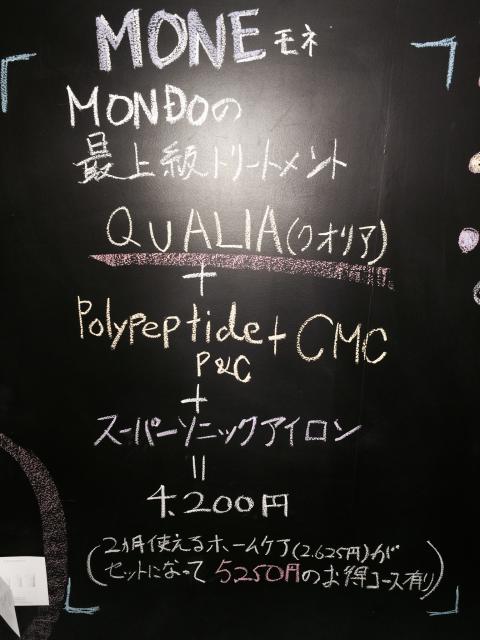 MONE モネ
MONDOの
最上級トリートメント
QUALIA(クオリア)
+
Polypeptide + CMC
P&C
+
スーパーソニックアイロン
=
4.200円
(2ヵ月使えるホームケア(2.625円)が
セットになって 5,250円のお得コース有り)